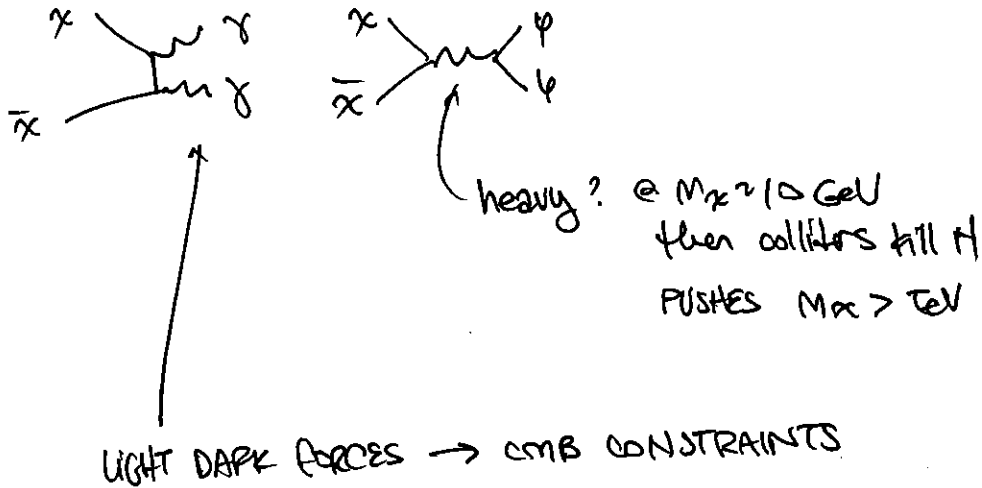 χ γ χ φ
χ̄ γ χ̄ φ
heavy? @ Mχ ~ 10 GeV
then colliders kill it
PUSHES Mχ > TeV
LIGHT DARK FORCES → CMB CONSTRAINTS